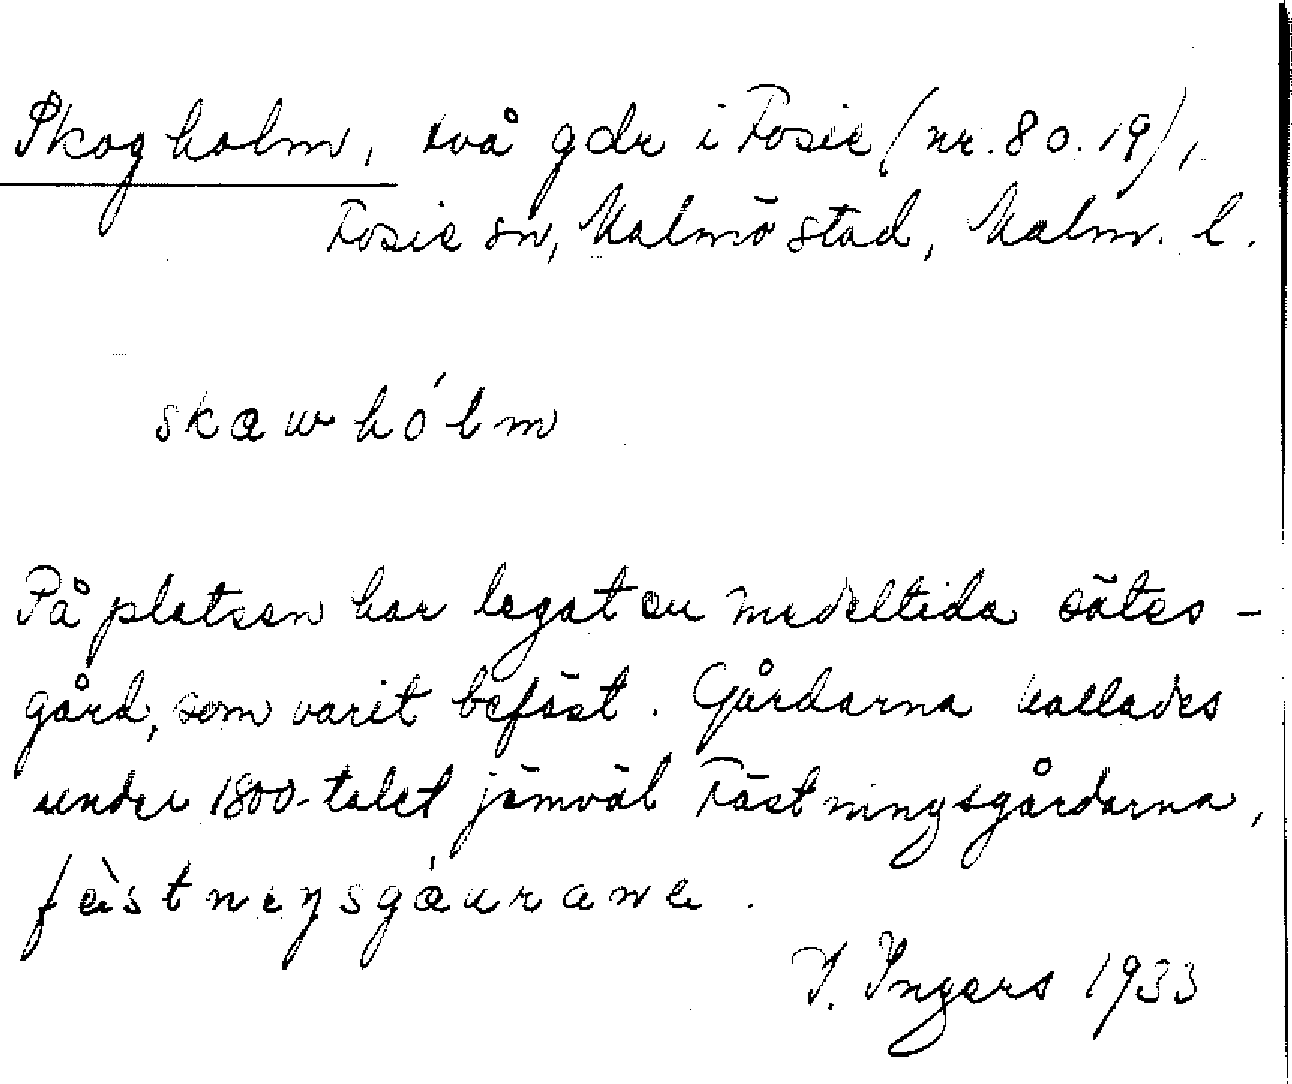 Skogholm, två gdr i Fosie (nr. 8 o. 19),
Fosie sn, Malmö stad, Malm. l.
skawhólm
På platsen har legat en medeltida sätes-
gård, som varit befäst. Gårdarna kallades
under 1800-talet jämväl Fästningsgårdarna,
fæ̀stneŋsgáurana.
I. Ingers 1933